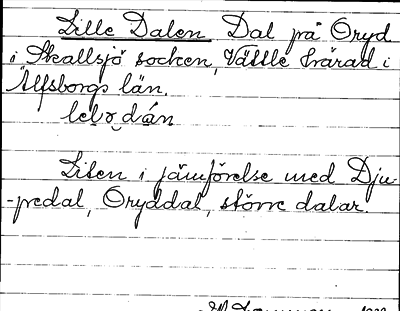 Lille Dalen Dal på Oryd
i Skallsjö socken, Vättle härad i
Älfsborgs län.
Liten i jämförelse med Dju-
-pedal, Oryddal, större dalar.